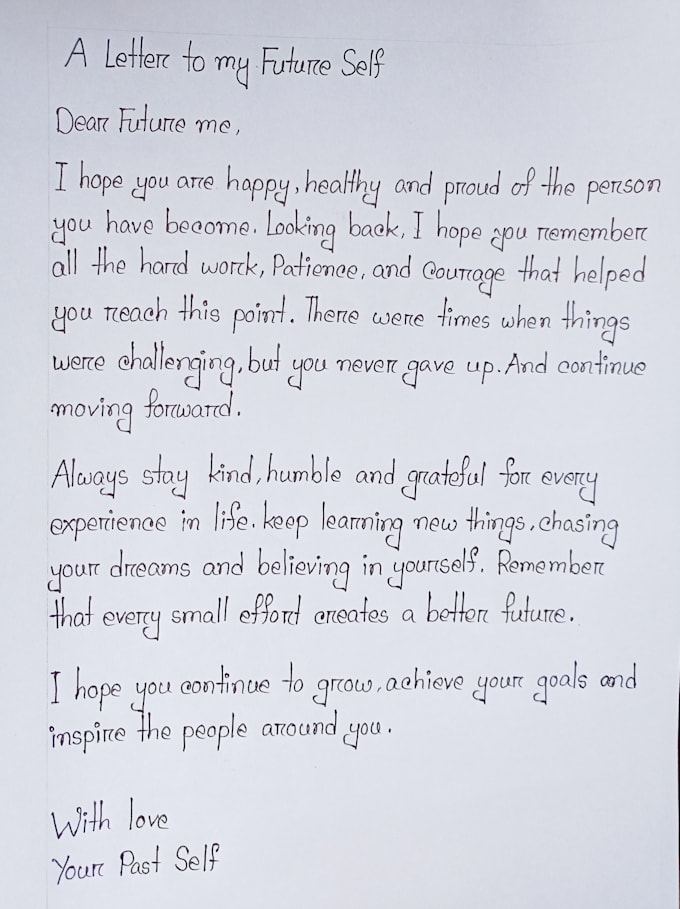 A Letter to my Future Self
Dear Future me,
I hope you are happy, healthy and proud of the person
you have become. Looking back, I hope you remember
all the hard work, Patience, and Courage that helped
you reach this point. There were times when things
were challenging, but you never gave up. And continue
moving forward.
Always stay kind, humble and grateful for every
experience in life. keep learning new things, chasing
your dreams and believing in yourself. Remember
that every small effort creates a better future.
I hope you continue to grow, achieve your goals and
inspire the people around you.
With love
Your Past Self